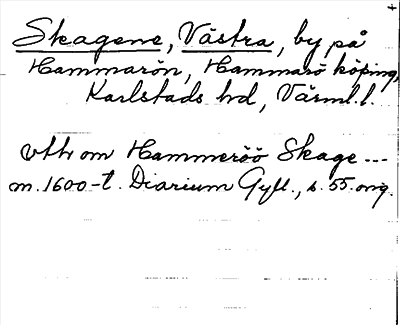 Skagene, Västra, by på
Hammarön, Hammarö köping,
Karlstads hd, Värml. l.
vth om Hammeröö Skage ...
m. 1600-t. Diarium Gyll., s. 55. orig.